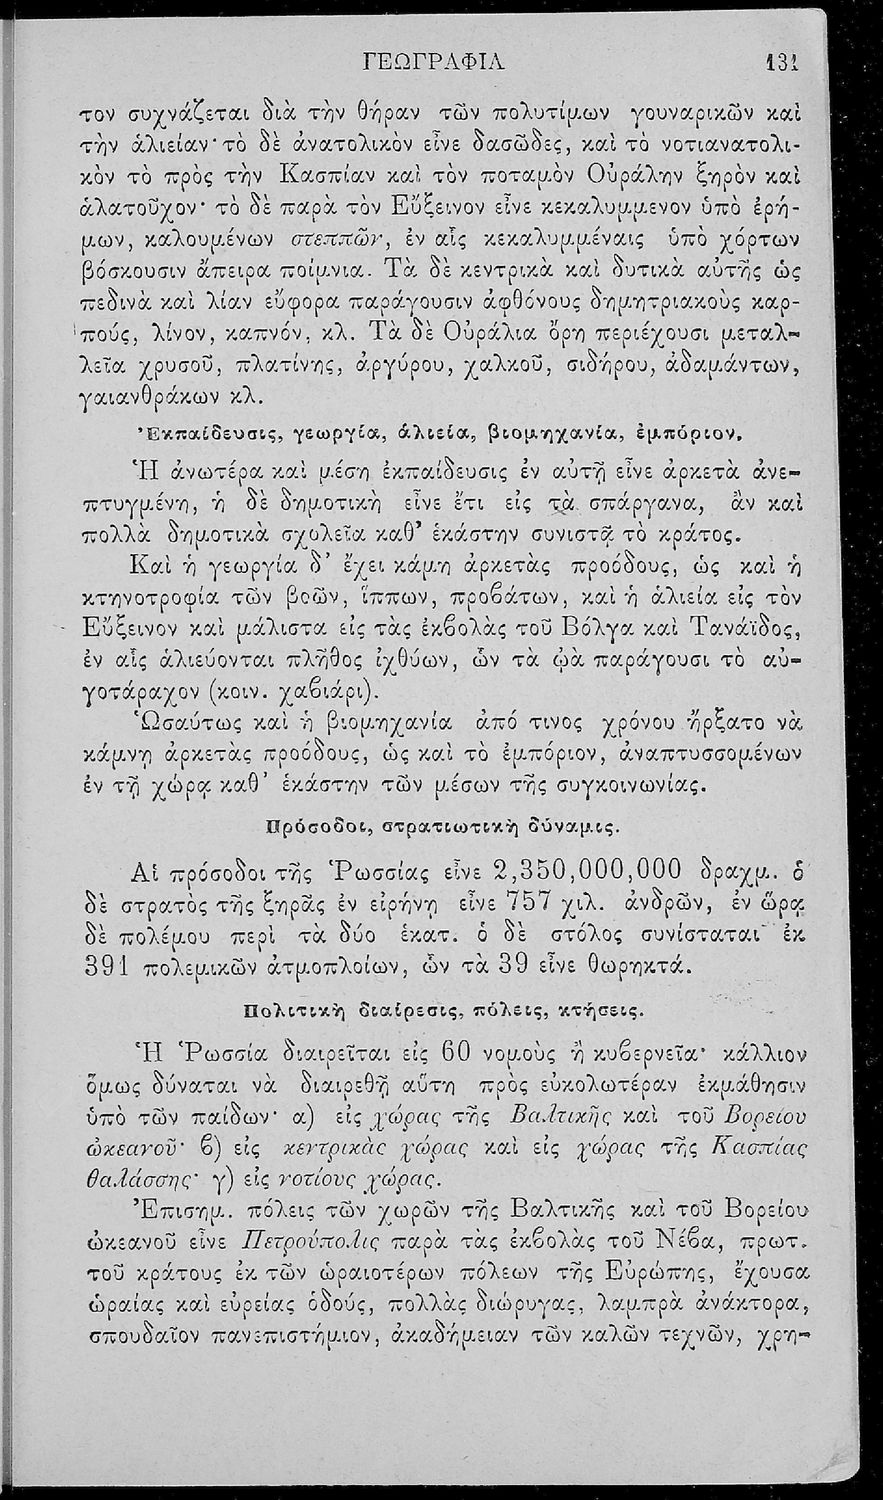 ΓΕΩΓΡΑΦΙΑ 131
τον συχνάζεται διὰ τὴν θήραν τῶν πολυτίμων γουναρικῶν καὶ
τὴν ἁλιείαν· τὸ δὲ ἀνατολικὸν εἶνε δασῶδες, καὶ τὸ νοτιανατολι-
κὸν τὸ πρὸς τὴν Κασπίαν καὶ τὸν ποταμὸν Οὐράλην ξηρὸν καὶ
ἁλατοῦχον· τὸ δὲ παρὰ τὸν Εὔξεινον εἶνε κεκαλυμμενον ὑπὸ ἐρή-
μων, καλουμένων στεππῶν, ἐν αἷς κεκαλυμμέναις ὑπὸ χόρτων
βόσκουσιν ἄπειρα ποίμνια. Τὰ δὲ κεντρικὰ καὶ δυτικὰ αὐτῆς ὡς
πεδινὰ καὶ λίαν εὔφορα παράγουσιν ἀφθόνους δημητριακοὺς καρ-
πούς, λίνον, καπνόν, κλ. Τὰ δὲ Οὐράλια ὄρη περιέχουσι μεταλ-
λεῖα χρυσοῦ, πλατίνης, ἀργύρου, χαλκοῦ, σιδήρου, ἀδαμάντων,
γαιανθράκων κλ.
Ἐκπαίδευσις, γεωργία, ἁλιεία, βιομηχανία, ἐμπόριον.
Ἡ ἀνωτέρα καὶ μέση ἐκπαίδευσις ἐν αὐτῇ εἶνε ἀρκετὰ ἀνε-
πτυγμένη, ἡ δὲ δημοτικὴ εἶνε ἔτι εἰς τὰ σπάργανα, ἂν καὶ
πολλὰ δημοτικὰ σχολεῖα καθ' ἑκάστην συνιστᾷ τὸ κράτος.
Καὶ ἡ γεωργία δ' ἔχει κάμη ἀρκετὰς προόδους, ὡς καὶ ἡ
κτηνοτροφία τῶν βοῶν, ἵππων, προϐάτων, καὶ ἡ ἁλιεία εἰς τὸν
Εὔξεινον καὶ μάλιστα εἰς τὰς ἐκϐολὰς τοῦ Βόλγα καὶ Τανάϊδος,
ἐν αἷς ἁλιεύονται πλῆθος ἰχθύων, ὧν τὰ ᾠὰ παράγουσι τὸ αὐ-
γοτάραχον (κοιν. χαϐιάρι).
Ὡσαύτως καὶ ἡ βιομηχανία ἀπό τινος χρόνου ἤρξατο νὰ
κάμνῃ ἀρκετὰς προόδους, ὡς καὶ τὸ ἐμπόριον, ἀναπτυσσομένων
ἐν τῇ χώρᾳ καθ' ἑκάστην τῶν μέσων τῆς συγκοινωνίας.
Πρόσοδοι, στρατιωτικὴ δύναμις.
Αἱ πρόσοδοι τῆς Ῥωσσίας εἶνε 2,350,000,000 δραχμ. ὁ
δὲ στρατὸς τῆς ξηρᾶς ἐν εἰρήνῃ εἶνε 757 χιλ. ἀνδρῶν, ἐν ὥρᾳ
δὲ πολέμου περὶ τὰ δύο ἑκατ. ὁ δὲ στόλος συνίσταται ἐκ
391 πολεμικῶν ἀτμοπλοίων, ὧν τὰ 39 εἶνε θωρηκτά.
Πολιτικὴ διαίρεσις, πόλεις, κτήσεις.
Ἡ Ῥωσσία διαιρεῖται εἰς 60 νομοὺς ἢ κυϐερνεῖα· κάλλιον
ὅμως δύναται νὰ διαιρεθῇ αὕτη πρὸς εὐκολωτέραν ἐκμάθησιν
ὑπὸ τῶν παίδων· α) εἰς χώρας τῆς Βαλτικῆς καὶ τοῦ Βορείου
ὠκεανοῦ· ϐ) εἰς κεντρικὰς χώρας καὶ εἰς χώρας τῆς Κασπίας
θαλάσσης· γ) εἰς νοτίους χώρας.
Ἐπισημ. πόλεις τῶν χωρῶν τῆς Βαλτικῆς καὶ τοῦ Βορείου
ὠκεανοῦ εἶνε Πετρούπολις παρὰ τὰς ἐκϐολὰς τοῦ Νέϐα, πρωτ.
τοῦ κράτους ἐκ τῶν ὡραιοτέρων πόλεων τῆς Εὐρώπης, ἔχουσα
ὡραίας καὶ εὐρείας ὁδούς, πολλὰς διώρυγας, λαμπρὰ ἀνάκτορα,
σπουδαῖον πανεπιστήμιον, ἀκαδήμειαν τῶν καλῶν τεχνῶν, χρη-